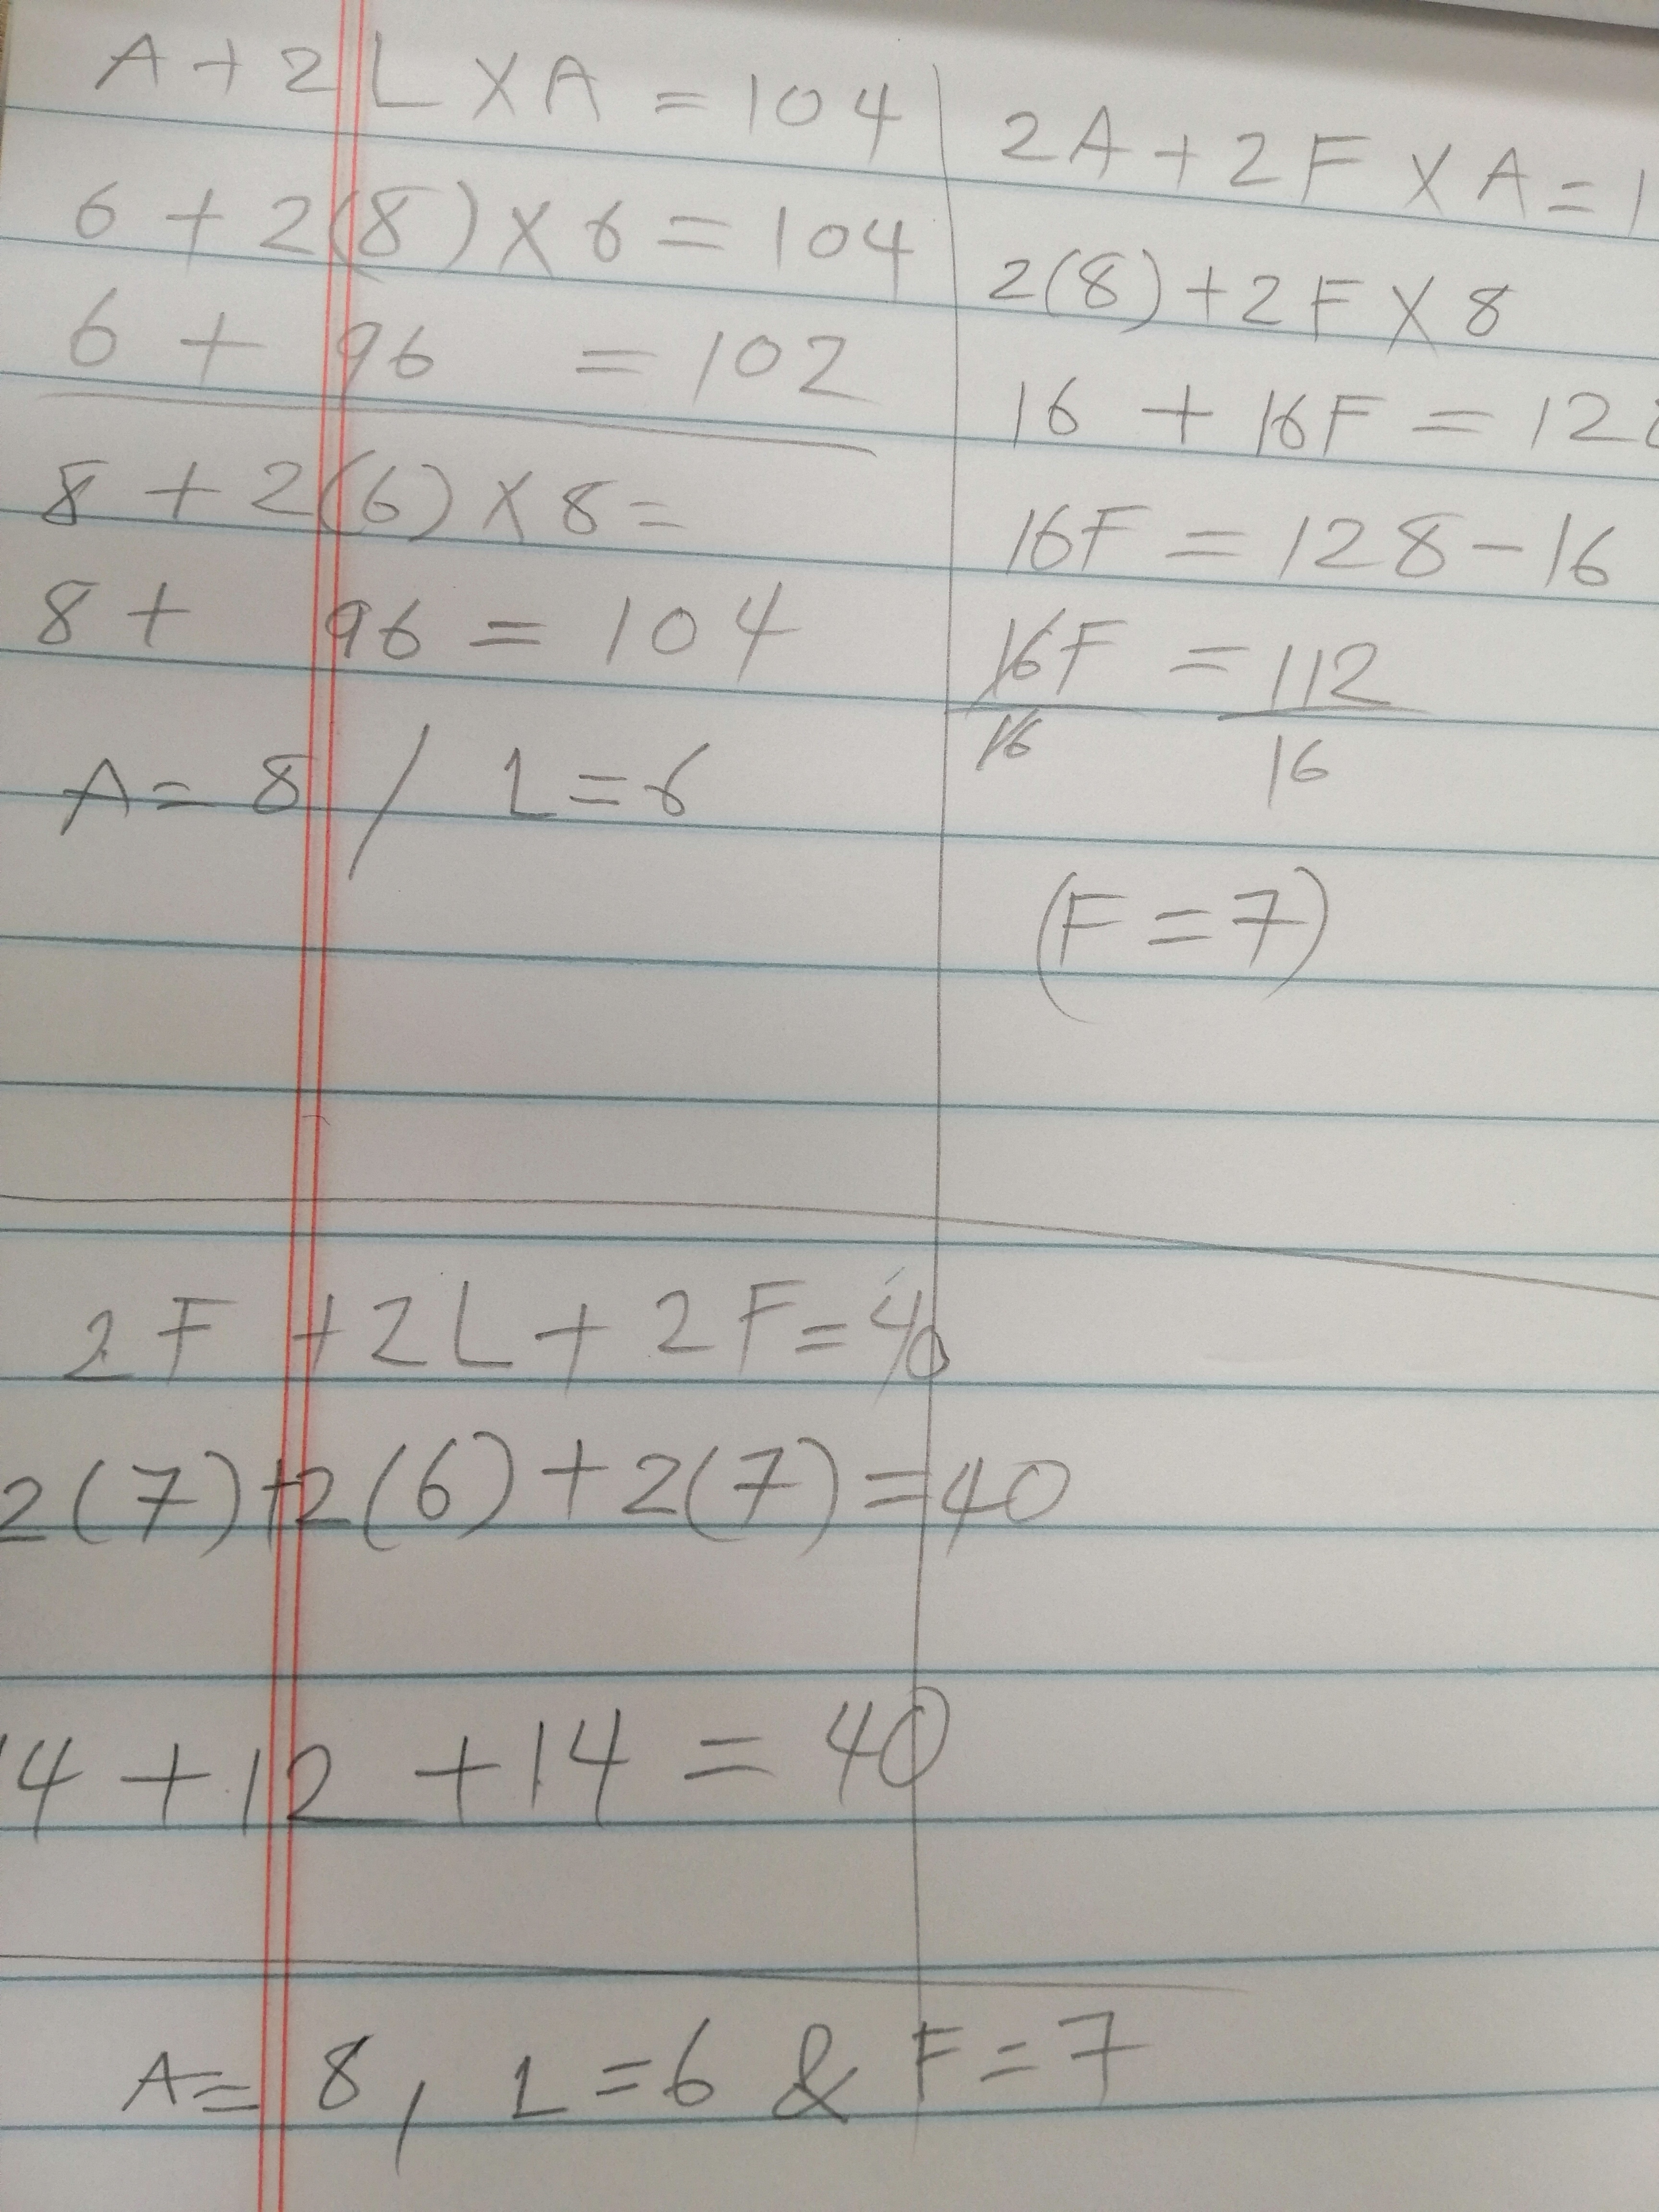 A + 2L X A = 104
6 + 2(8) X 6 = 104
6 + 96 = 102
8 + 2(6) X 8 =
8 + 96 = 104
A = 8 / L = 6
2A + 2F X A = 1
2(8) + 2F X 8
16 + 16F = 128
16F = 128 - 16
16F = 112
16 16
(F = 7)
2F + 2L + 2F = 40
2(7) + 2(6) + 2(7) = 40
14 + 12 + 14 = 40
A = 8, L = 6 & F = 7